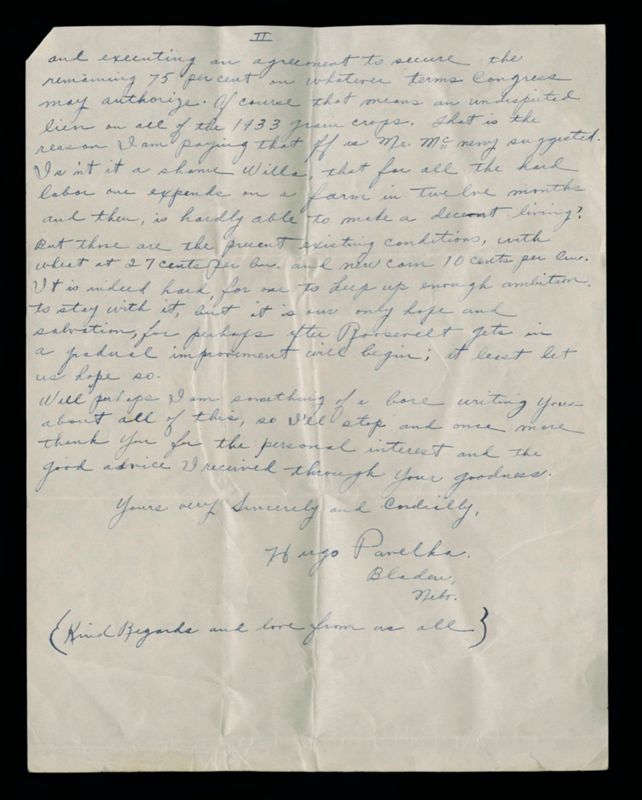 II
and executing an agreement to secure the
remaining 75 per cent on whatever terms Congress
may authorize. Of course that means an undisputed
lien on all of the 1933 grain crops. That is the
reason I am paying that off as Mr. McNeny suggested.
Is'nt it a shame Willa, that for all the hard
labor one expends on a farm in twelve months
and then, is hardly able to make a decent living?
But those are the present existing conditions, with
wheat at 27 cents per bu. and new corn 10 cents per bu.
It is indeed hard, for one to keep up enough ambition,
to stay with it, but it is our only hope and
salvation, for perhaps after Roosevelt gets in
a gradual improvment will begin; at least let
us hope so.
Well perhaps I am something of a bore writing you
about all of this, so I'll stop and once more
thank you for the personal interest and the
good advice I received through your goodness.
Yours very Sincerely and Cordially,
Hugo Pavelka.
Bladen,
Nebr.
{Kind Regards and love from us all}